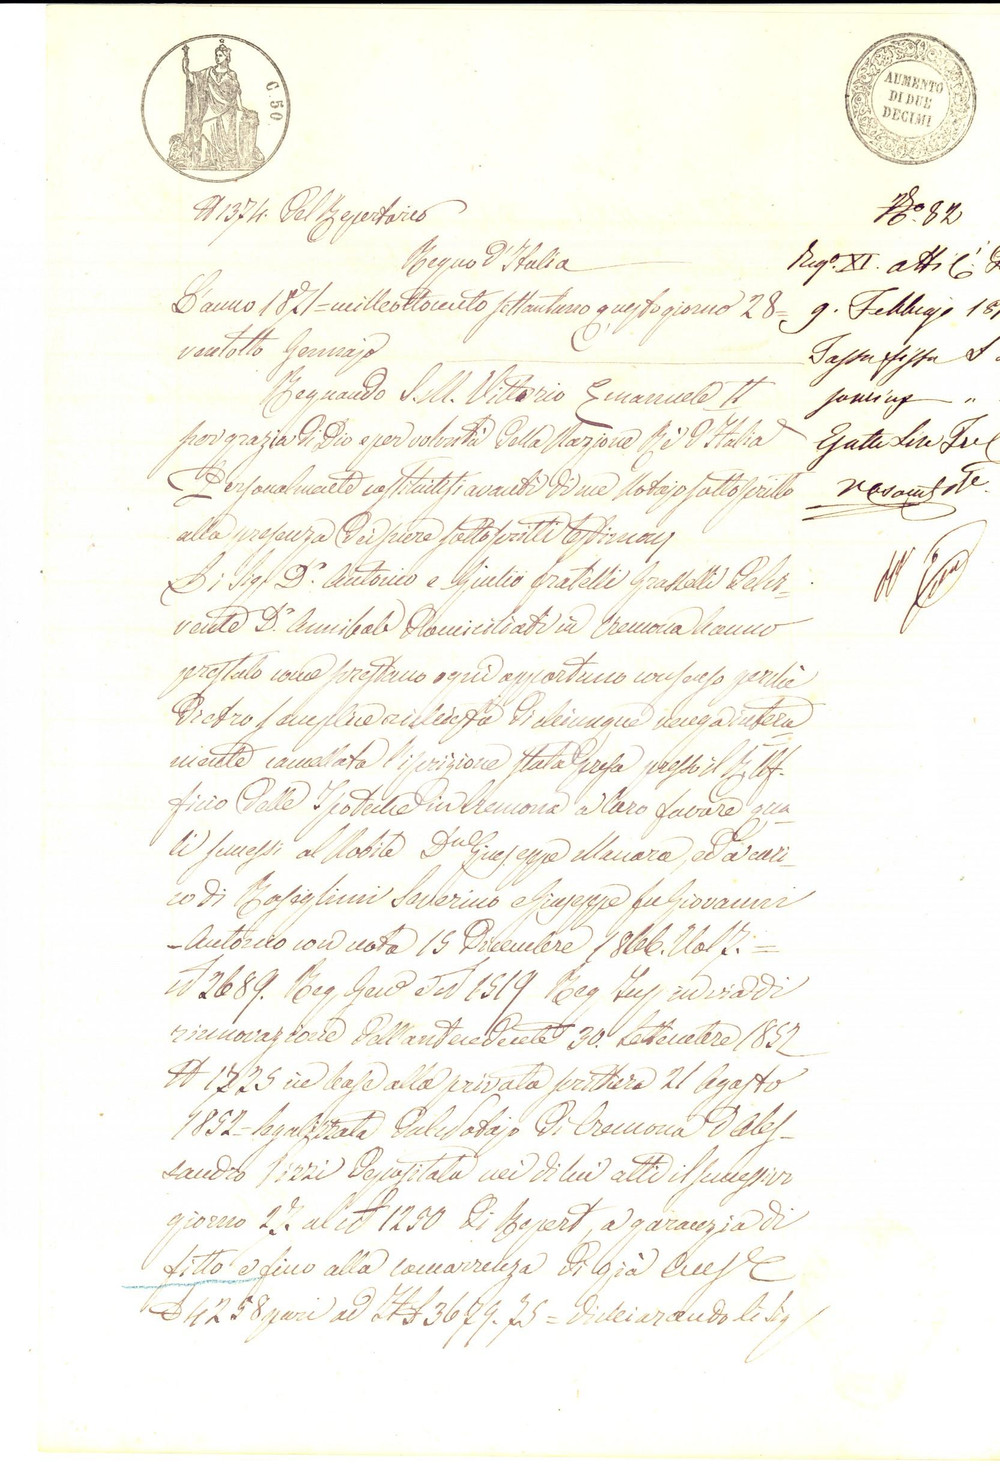 C. 50.
AUMENTO
DI DUE
DECIMI
N 1374. Del Repertorio
Regno d'Italia
L'anno 1871 = milleottocento settantuno questo giorno 28 =
ventotto Gennajo
Regnando S. M. Vittorio Emanuele II
per grazia di Dio e per volontà della Nazione Rè d'Italia
Personalmente costituitisi avanti di me Notajo sottoscritto
alla presenza dei pure sottoscritti testimonj
Li Sigj Dr. Antonio e Giulio fratelli Grasselli del vi-
vente Dr. Annibale domiciliati in Cremona hanno
prestato come prestano ogni opportuno consenso perchè
dietro semplice richiesta di chiunque venga intera
mente cancellata l'iscrizione stata presa presso il R. Uf-
ficio delle Ipoteche in Cremona a loro favore qua-
li successi al Nobile Dn Giuseppe Manara, ed a cari-
co di Severino e Giuseppe fu Giovanni
Antonio con nota 15 Dicembre 1866. Vol 7. =
N 2689. Reg. Gen.e ed N 1519 Reg in via di
rinnovazione dell'antecedente 30. Settembre 1852
N 1725 in base alla privata scrittura 21 Agosto
1852 = legalizzata dal Notajo di Cremona D Ales-
sandro Pizzi depositata nei di lui atti il successivo
giorno 27 al N 1250 di Repert, a garanzia di
fitto e fino alla concorrenza di già
£ 4258 pari ad It £ 3679. 75 = dichiarando li Sig
No. 82
Reg.o XI. atti
9. Febbrajo
Tassa fissa £
Esatte Lire Tre